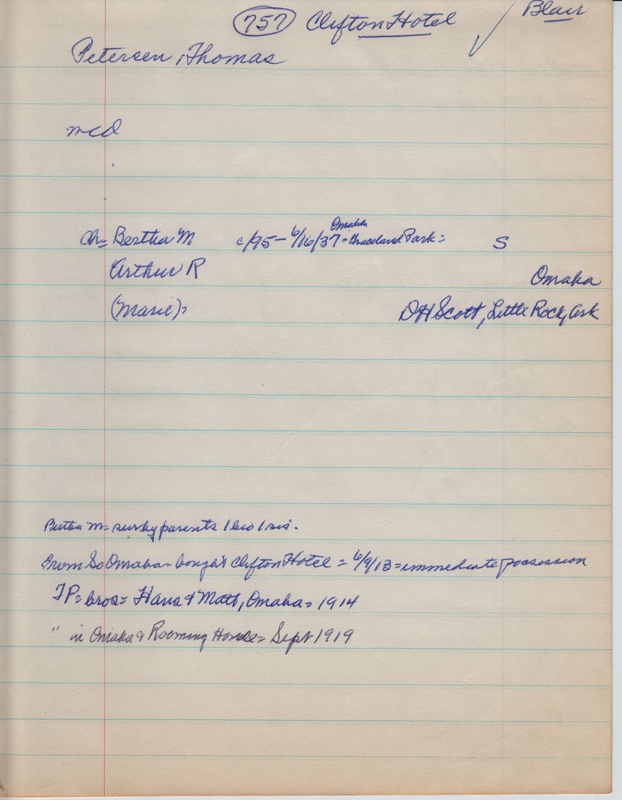 757 Clifton Hotel Blair
Petersen, Thomas
mcd
ch= Bertha M c/95 - 6/16/37 = Graceland Park = S
Omaha
Arthur R Omaha
(Marie)? D H Scott, Little Rock, Ark
Bertha M = surv by parents 1 bro 1 sis.
From So Omaha = bought Clifton Hotel = 6/9/13 = immediate possession
TP = bros = Hans & Matt, Omaha = 1914
" in Omaha & Rooming House = Sept 1919